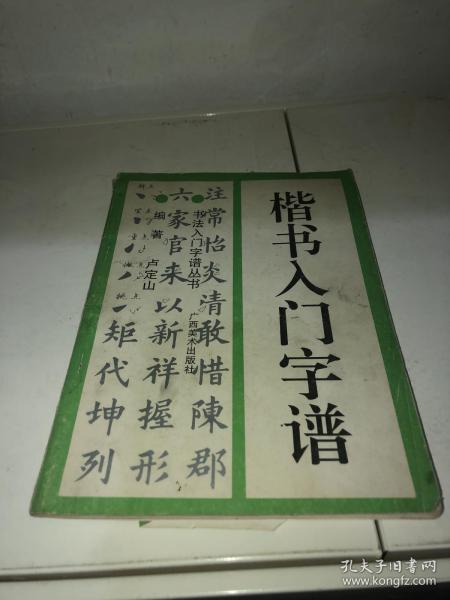 楷书入门字谱
书法入门字谱丛书
编著 卢定山
广西美术出版社
注常怡炎清敢惜陳郡
六家官来以新祥握形
矩代坤列
孔夫子旧书网
www.kongfz.com